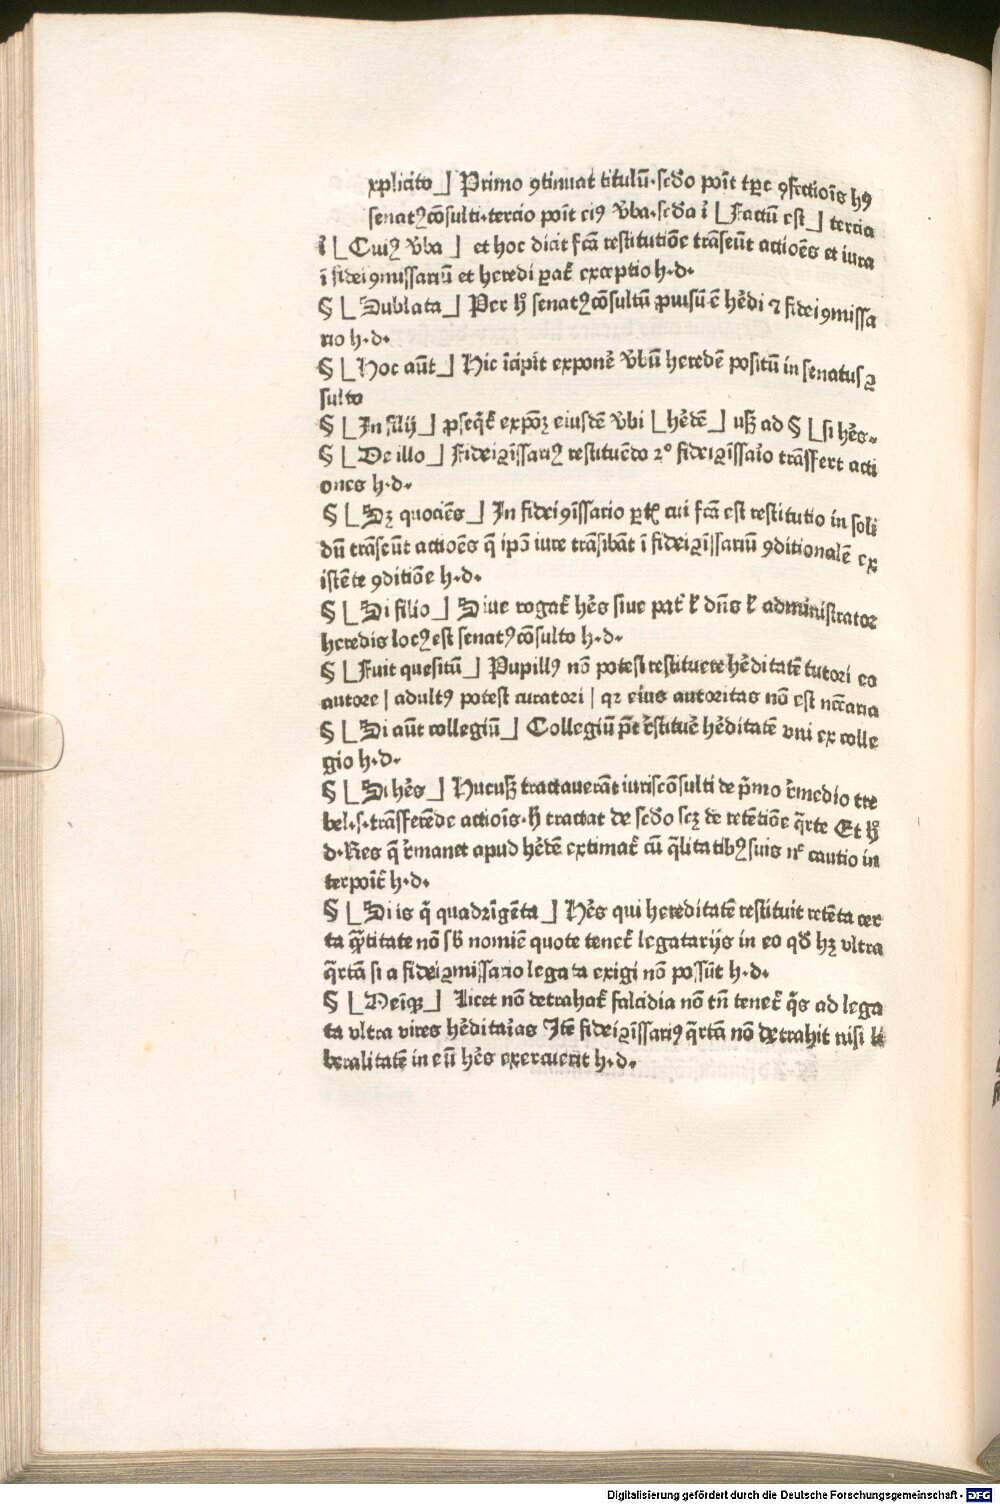 xplicito⌋ Primo ꝯtinuat titulū·scd̄o poīt tp̄e ꝯfectiōis hꝰ
senatꝰcōsulti·tercio poīt eiꝰ v̄ba·scd̄a ī ⌊Factū est⌋ tercia
ī ⌊Cuiꝰ v̄ba⌋ et hoc dicit fcā restitutiōe trāseūt actiōēs et iura
ī fideiꝯmissariū et heredi ꝑat̄ exceptio h·d·
§ ⌊Sublata⌋ Per h̄ senatꝰcōsultū ꝓuisū ē hēdi ⁊ fideiꝯmissa
rio h·d·
§ ⌊Hoc aūt⌋ Hic īcipit exponē v̄bū heredē positū in senatus ꝯ
sulto
§ ⌊In filij⌋ ꝓseq̄t̄ expōꝫ eiusdē v̄bi ⌊hēdē⌋ usꝫ ad § ⌊si hēs·
§ ⌊De illo⌋ Fideiꝯīssariꝰ restituēdo 2° fideiꝯīssaīo trāsfert acti
ones h·d·
§ ⌊Sꝫ quociēs⌋ In fideiꝯīssario ꝑt̄ cui fcā est restitutio in soli
dū trāseūt actioēs q̄ ipō iure trāsibāt ī fideiꝯīssariū ꝯditionalē ex
istēte ꝯditiōe h·d·
§ ⌊Si filio⌋ Siue rogat̄ hēs siue pat̄ ł dn̄s ł administrator
heredis locꝰ est senatꝰcōsulto h·d·
§ ⌊Fuit quesitū⌋ Pupillꝰ nō potest restituere hēditatē tutori eo
autore | adultꝰ potest curatori | qꝛ eius autoritas nō est nccāria
§ ⌊Si aūt collegiū⌋ Collegiū p̄t r̄stituē hēditatē vni ex colle
gio h·d·
§ ⌊Si hēs⌋ Hucusꝫ tractauerāt iuriscōsulti de p̄mo r̄medio tre
bel·s·trāsferēde actiōis·h̄ tractat de scd̄o scꝫ de retētiōe q̄rte Et h̄
d·Res q̄ r̄manet apud hēdē extimat̄ cū q̄litatibꝰ suis n̄ cautio in
terpoīt̄ h·d·
§ ⌊Si is q̄ quadrīgēta⌋ Hēs qui hereditatē restituit retēta cer
ta q̄titate nō sb̄ nomīe quote tenet̄ legatarijs in eo qd̄ hꝫ vltra
q̄rtā si a fideiꝯmissario legata exigi nō possūt h·d·
§ ⌊Deīqꝫ⌋ Licet nō detrahat̄ falcidia nō tn̄ tenet̄ q̄s ad lega
ta vltra vires hēditaīas Itē fideiꝯīssariꝰ q̄rtā nō detrahit nisi li
beralitatē in eū hēs exercuerit h·d·
Digitalisierung gefördert durch die Deutsche Forschungsgemeinschaft - DFG